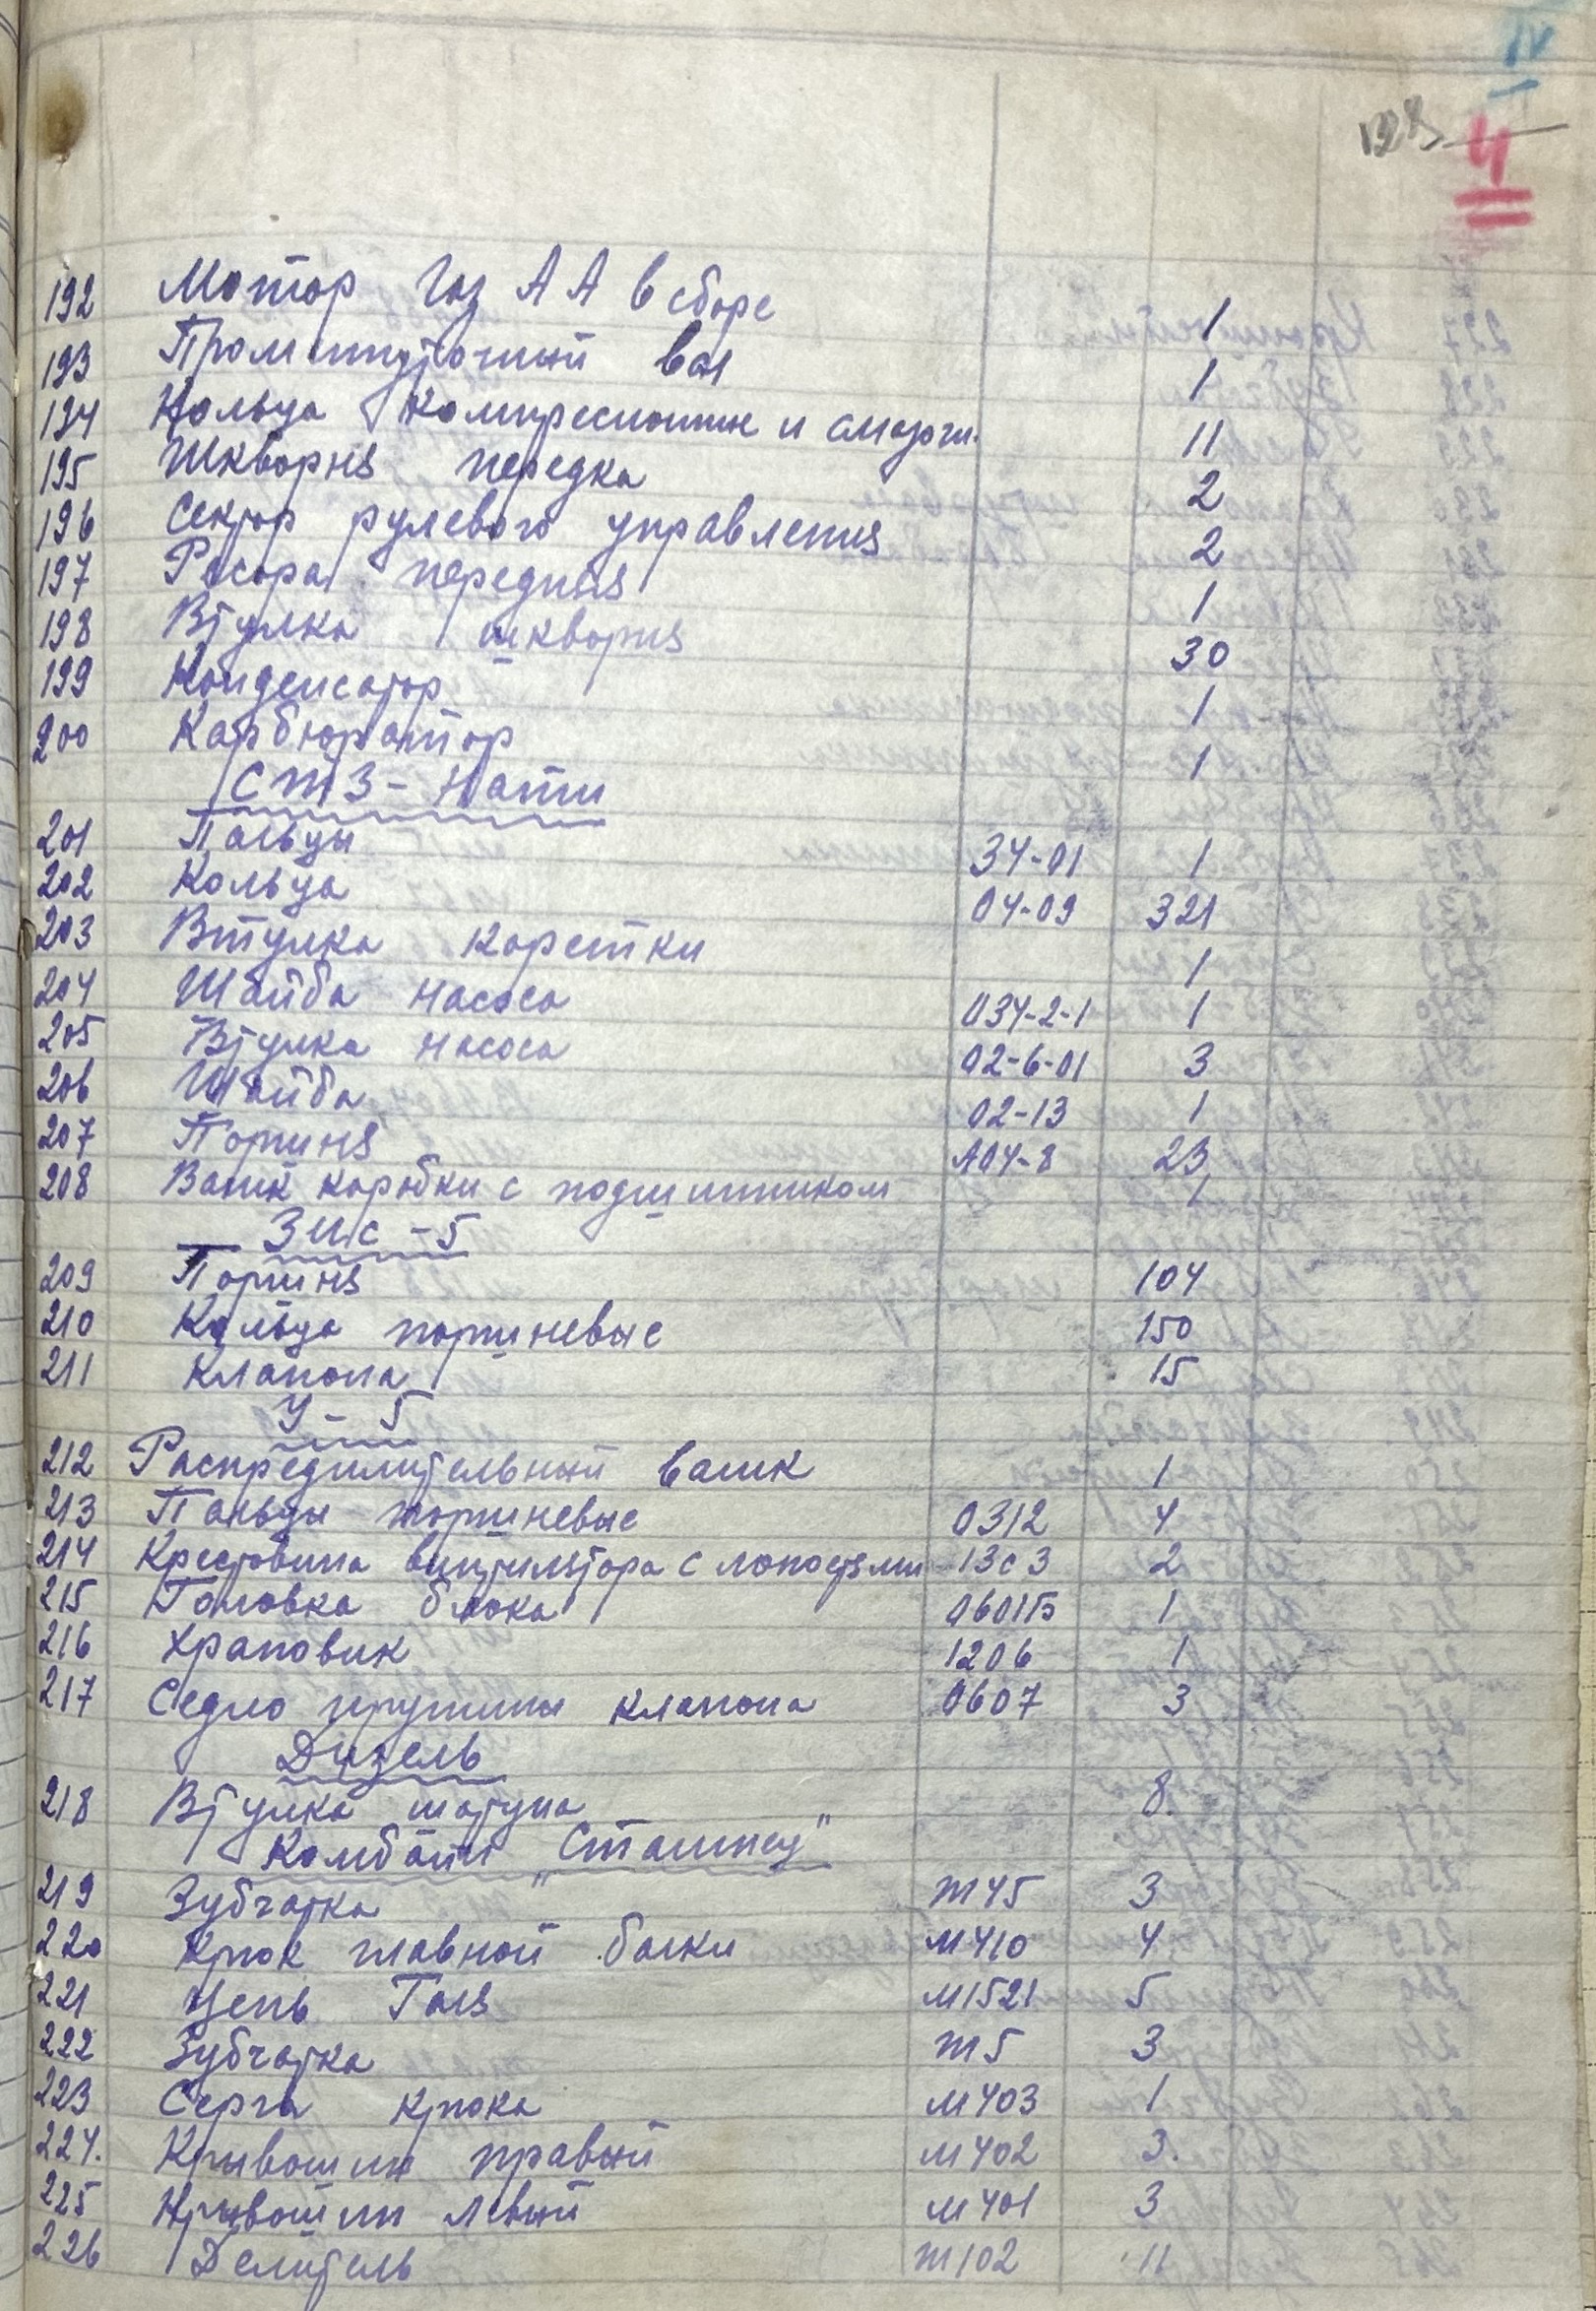 IV
4
192 Мотор Газ АА в сборе 1
193 Промежуточный вал 1
194 Кольца компресионные и смазочн. 11
195 Шкворня передка 2
196 Сектор рулевого управления 2
197 Расора передняя 1
198 Втулка шкворня 30
199 Конденсатор 1
200 Карбюратор 1
СТЗ - Нати
201 Пальцы 34-01 1
202 Кольца 04-09 321
203 Втулка каретки 1
204 Шайба насоса 034-2-1 1
205 Втулка насоса 02-6-01 3
206 Шайба 02-13 1
207 Поршня А04-8 23
208 Валик коробки с подшипником 1
Зис - 5
209 Поршня 104
210 Кольца поршневые 150
211 Клапана 15
У - 5
212 Распредилительный валик 1
213 Пальцы поршневые 0312 4
214 Крестовина вентилятора с лопостями 13с3 2
215 Головка блока 0601Б 1
216 Храповик 1206 1
217 Седло пружины клапана 0607 3
Дизель
218 Втулка шатуна 8.
Комбайн "Сталинец"
219 Зубчатка т45 3
220 Крюк главной балки м410 4
221 Цепь Галя м1521 5
222 Зубчатка т5 3
223 Серга крюка м403 1
224. Кривошип правый м402 3.
225 Кривошип левый м401 3
226 Делитель т102 11